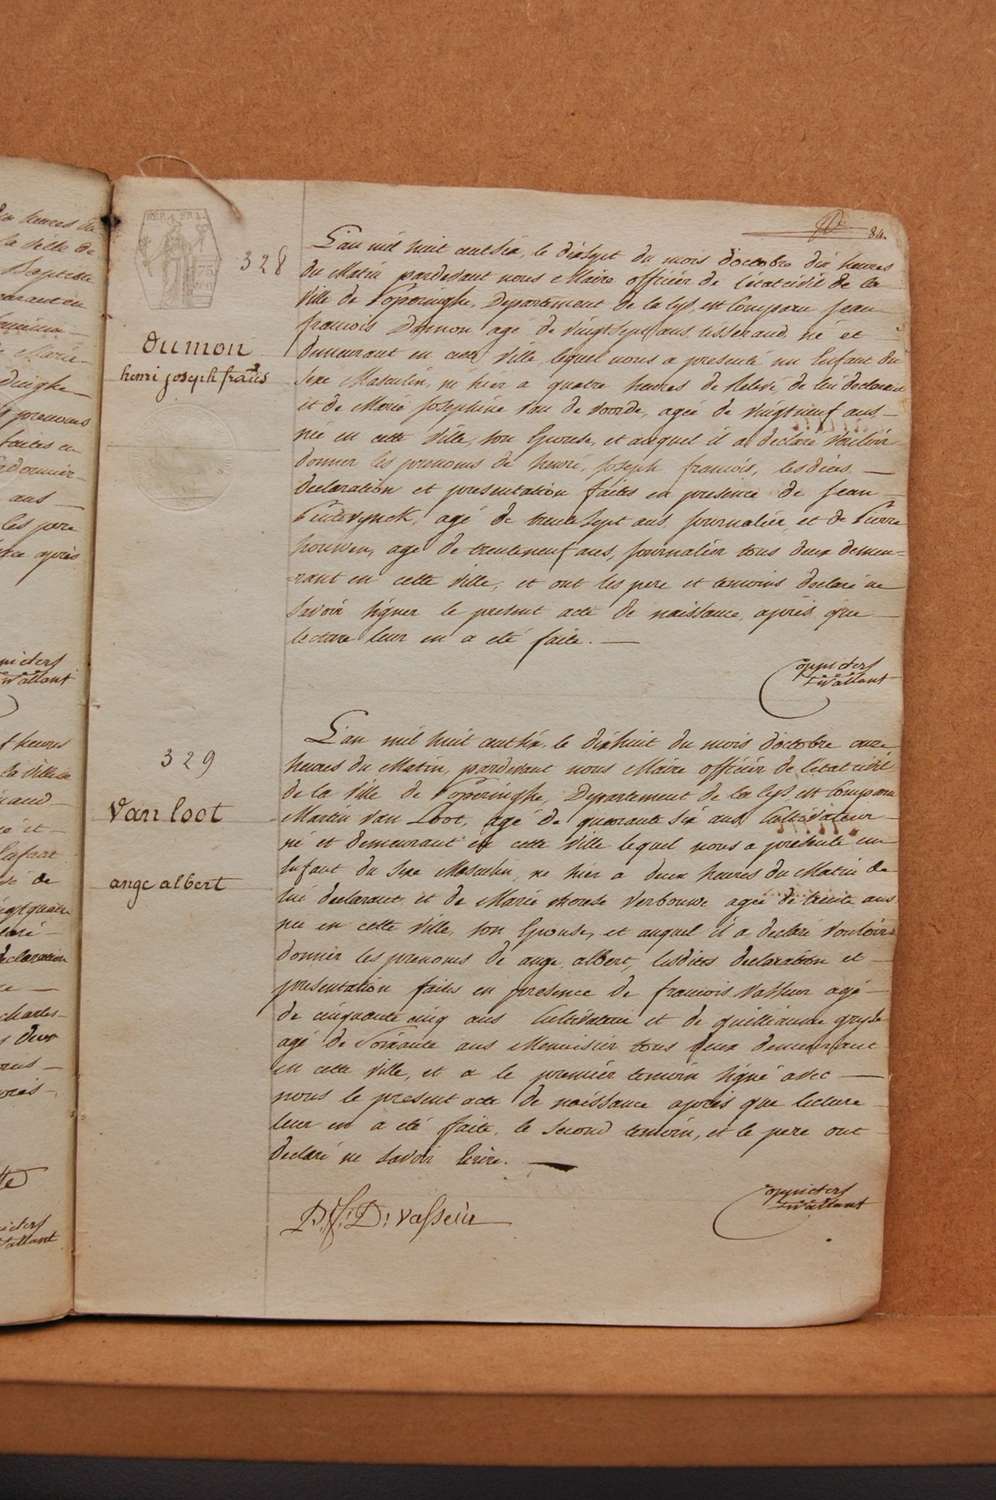 84.
328
L'an mil huit cent six, le dixsept du mois d'octobre dix heures
du Matin pardevant nous Maire officier de l'état civil de la
ville de Poperinghe, Departement de la Lys, est Comparu jean
francois Dumon, agé de vingt sept ans tisserand, né et
demeurant en cette Ville, lequel nous a presenté un Enfant du
Dumon
henri joseph francois
sexe Masculin, né hier a quatre heures de Relevé, de lui declarant
et de Marie Josephine Van de voorde, agée de vingt neuf ans
née en cette ville, son Epouse, et auquel il a declaré vouloir
donner les prenoms de henri, joseph francois, lesdites
declaration et presentation faites en presence de jean
agé de trente sept ans, journalier, et de Pierre
agé de trente neuf ans, journalier tous deux demeu-
rant en cette ville, et ont les pere et temoins declaré ne
savoir signer le present acte de naissance, après que
lecture leur en a été faite.
329
L'an mil huit cent six, le dixhuit du mois d'octobre onze
heures du Matin, pardevant nous Maire officier de l'état civil
de la ville de Poperinghe, Departement de la Lys est Comparu
Van loot
Martin Van Loot, agé de quarante six ans, Cultivateur
né et demeurant en cette ville lequel nous a presenté un
ange albert
Enfant du sexe Masculin, né hier a deux heures du Matin de
lui declarant, et de Marie therese Verbouwe agée de trente ans
née en cette ville, son Epouse, et auquel il a declaré vouloir
donner les prenoms de ange, albert, lesdites declaration et
presentation faites en presence de francois Vasseur agé
de cinquante cinq ans Cultivateur et de guilliaume
agé de Soixante ans Menuisier tous deux demeurant
en cette ville, et a le premier temoin signé avec
nous le present acte de naissance après que lecture
leur en a été faite, le second temoin, et le pere ont
declaré ne savoir écrire.
Vasseur